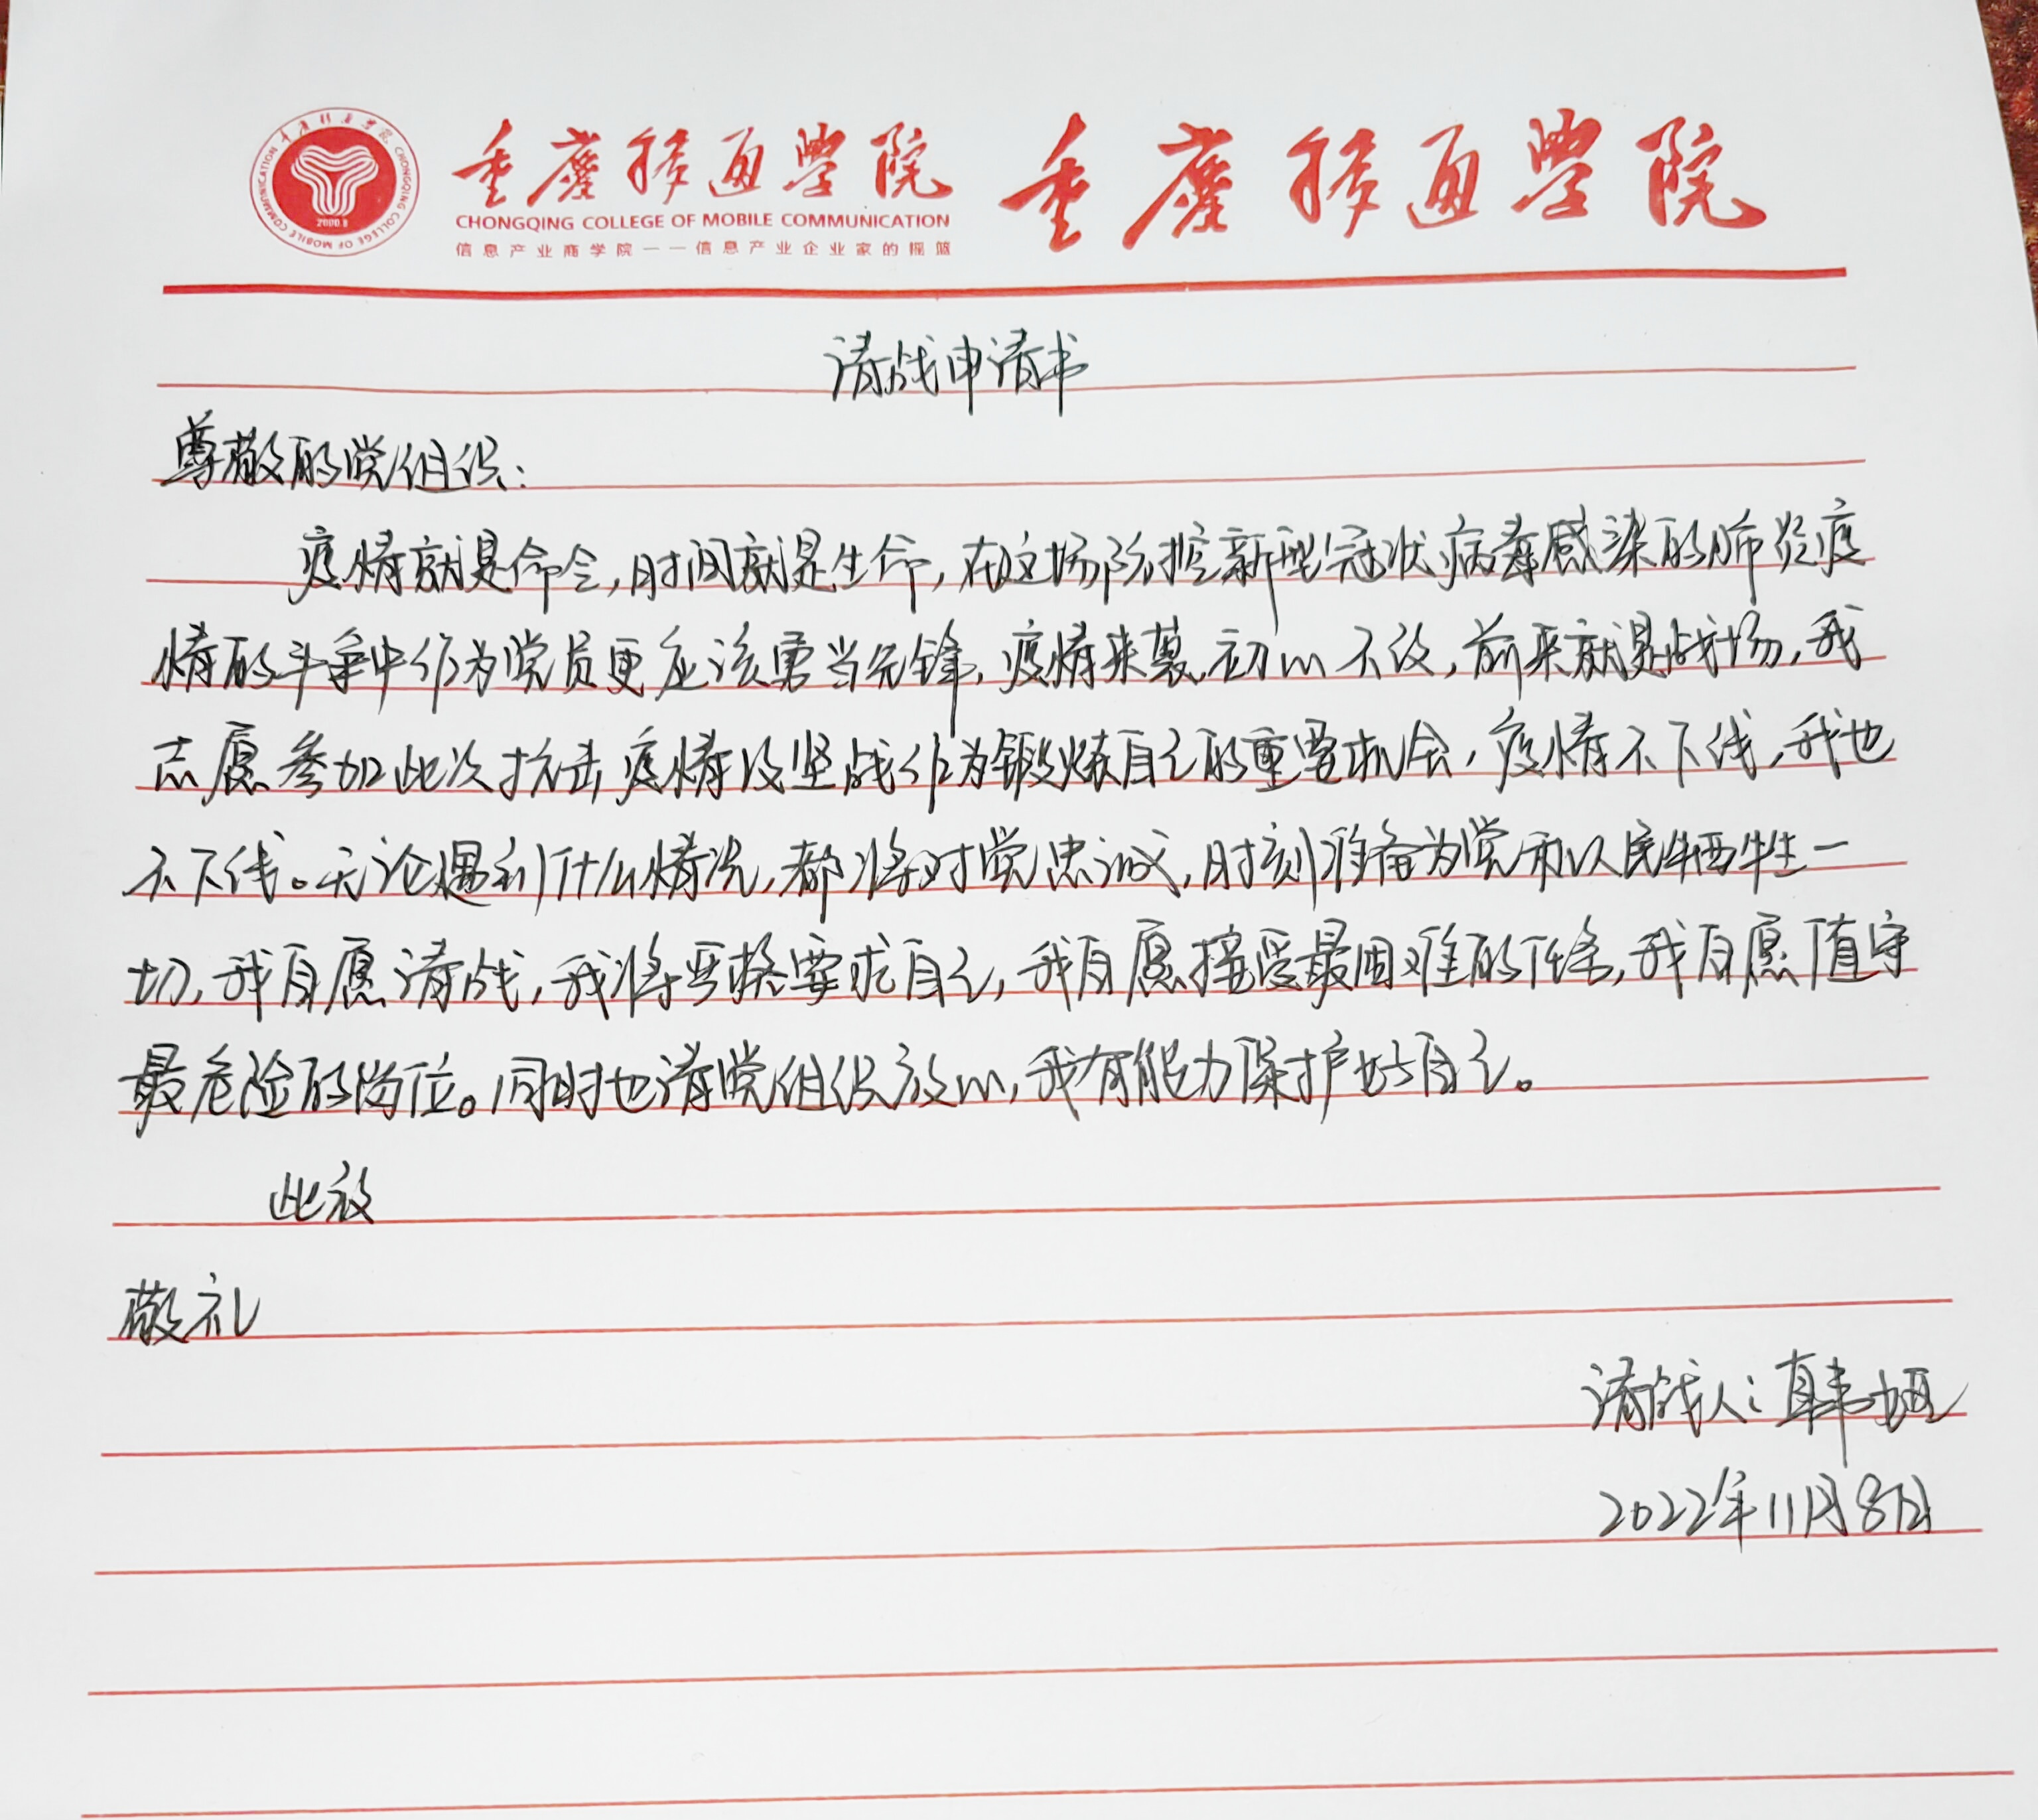 重庆移通学院
CHONGQING COLLEGE OF MOBILE COMMUNICATION
2000.8
重庆移通学院
CHONGQING COLLEGE OF MOBILE COMMUNICATION
信息产业商学院——信息产业企业家的摇篮
重庆移通学院
请战申请书
尊敬的党组织：
疫情就是命令，时间就是生命，在这场防控新型冠状病毒感染的肺炎疫
情的斗争中作为党员更应该勇当先锋，疫情来袭，初心不改，前来就是战场，我
志愿参加此次抗击疫情攻坚战作为锻炼自己的重要机会，疫情不下线，我也
不下线。无论遇到什么情况，都将对党忠诚，时刻准备为党和人民牺牲一
切，我自愿请战，我将严格要求自己，我自愿接受最困难的任务，我自愿值守
最危险的岗位。同时也请党组织放心，我有能力保护好自己。
此致
敬礼
请战人：韩娅
2022年11月8日